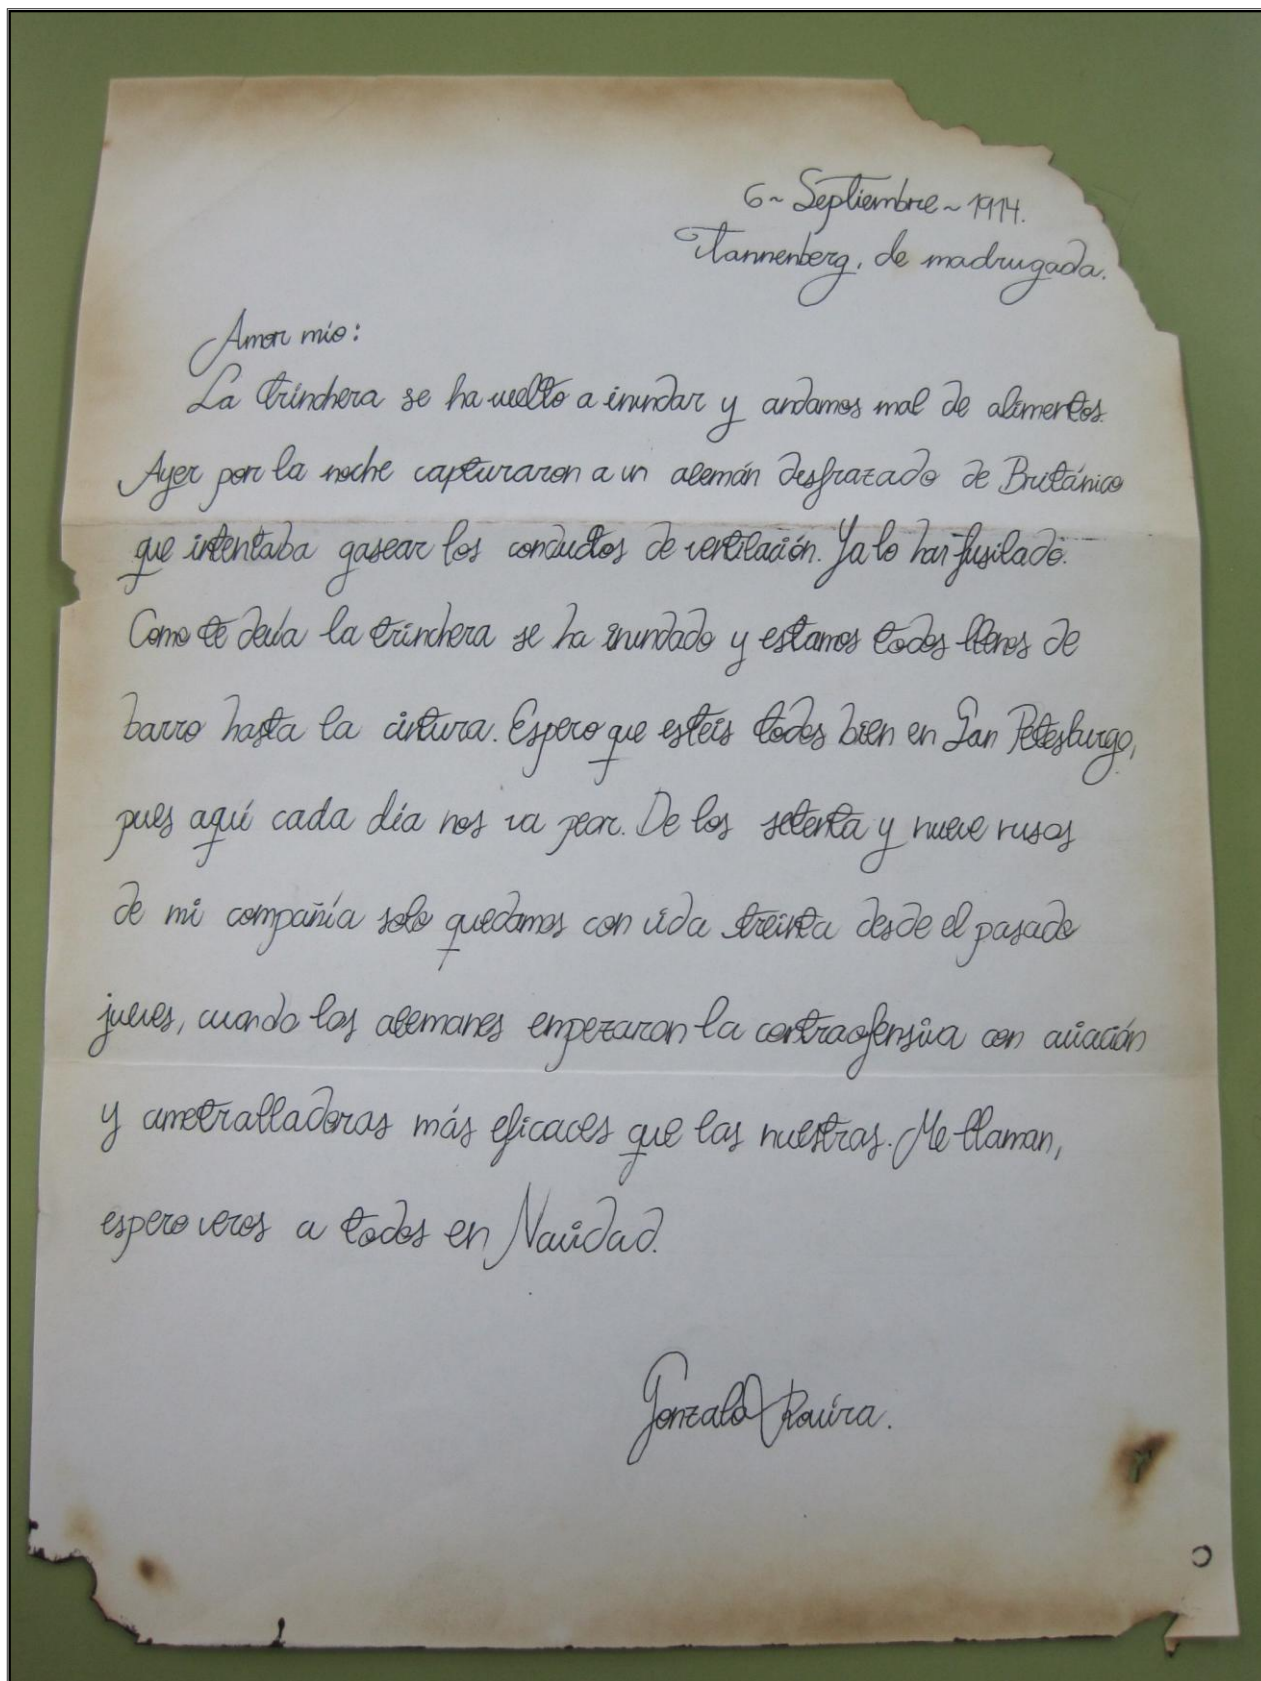 6 ~ Septiembre ~ 1914.
Tannenberg, de madrugada.
Amor mío:
La trinchera se ha vuelto a inundar y andamos mal de alimentos.
Ayer por la noche capturaron a un alemán desfrazado de Británico
que intentaba gasear los conductos de ventilación. Ya lo han fusilado.
Como te decía la trinchera se ha inundado y estamos todos llenos de
barro hasta la cintura. Espero que esteís todos bien en San Petesburgo,
pues aquí cada día nos va peor. De los setenta y nueve rusos
de mi compañía solo quedamos con vida treinta desde el pasado
jueves, cuando los alemanes empezaron la contraofensiva con aviación
y ametralladoras más eficaces que las nuestras. Me llaman,
espero veros a todos en Navidad.
Gonzalo Rovira.